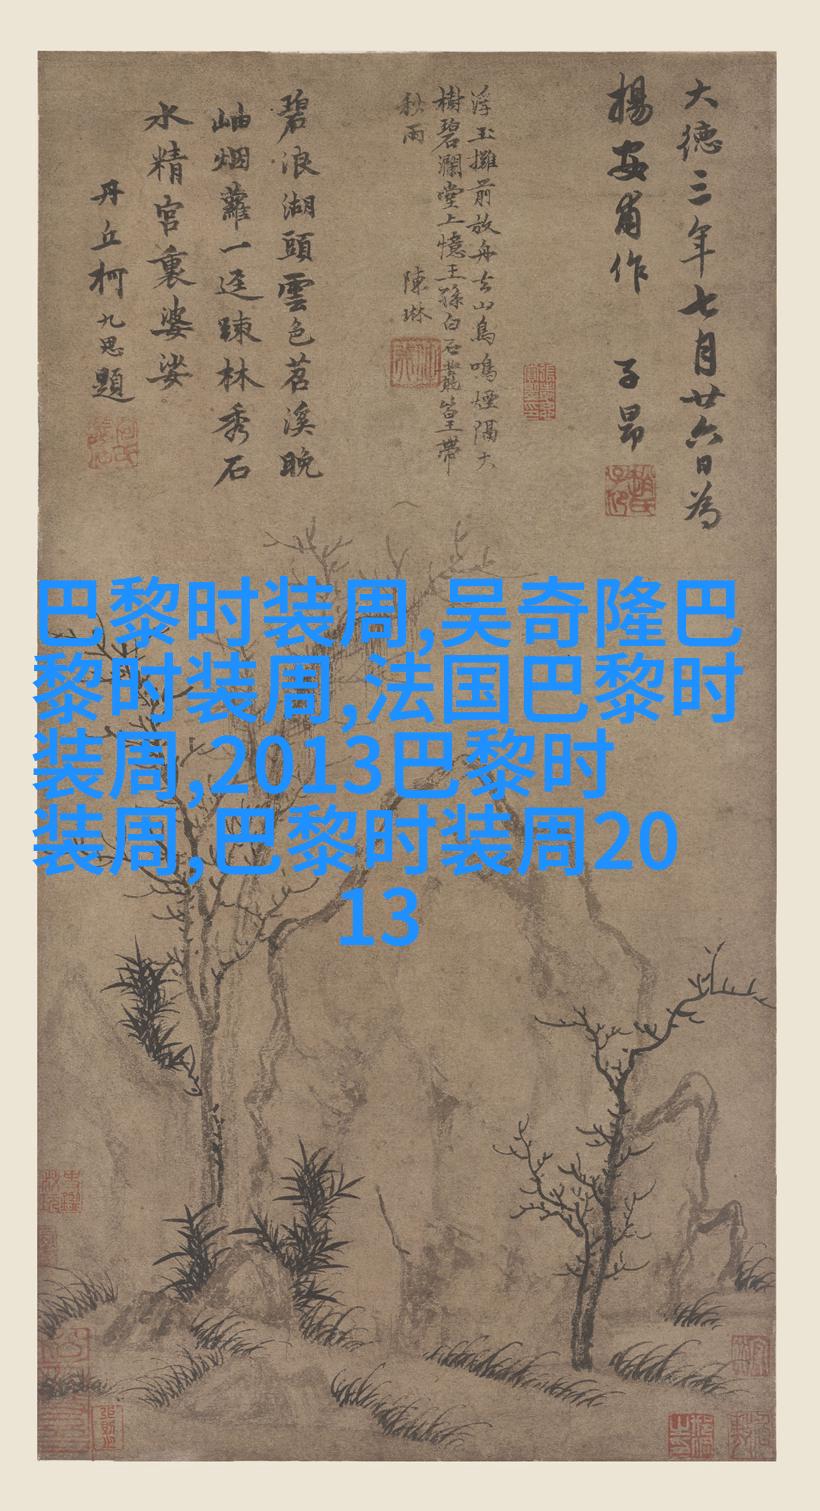 大德三年七月廿六日為
楊安甫作 子昂
浮玉攤前放舟去山鳥鳴煙隔大
樹碧瀾堂上憶王孫白石叢篁帶
秋雨 陳琳
碧浪湖頭雲色苕溪晚
岫烟蘿一迳踈林秀石
水精宮裏婆娑
丹丘柯九思題
巴黎时装周,吴奇隆巴
黎时装周,法国巴黎时
装周,2013巴黎时
装周,巴黎时装周20
13